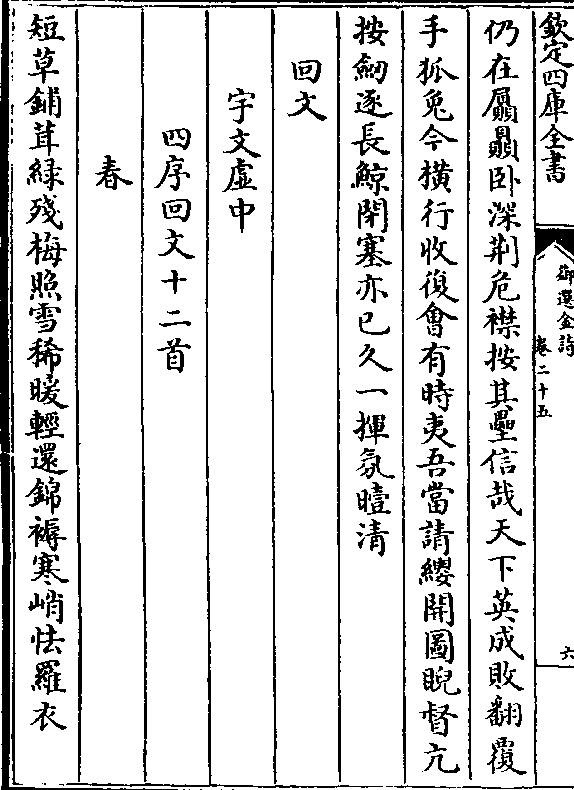 欽定四庫全書
御選金詩
卷二十五
六
仍在屭贔卧深荆危襟按其壘信哉天下英成敗翻覆
手狐兔今横行收復會有時夷吾當請纓開圖睨督亢
按劒逐長鯨閉塞亦已久一揮氛曀清
回文
宇文虚中
四序回文十二首
春
短草鋪茸緑殘梅照雪稀暖輕還錦褥寒峭怯羅衣